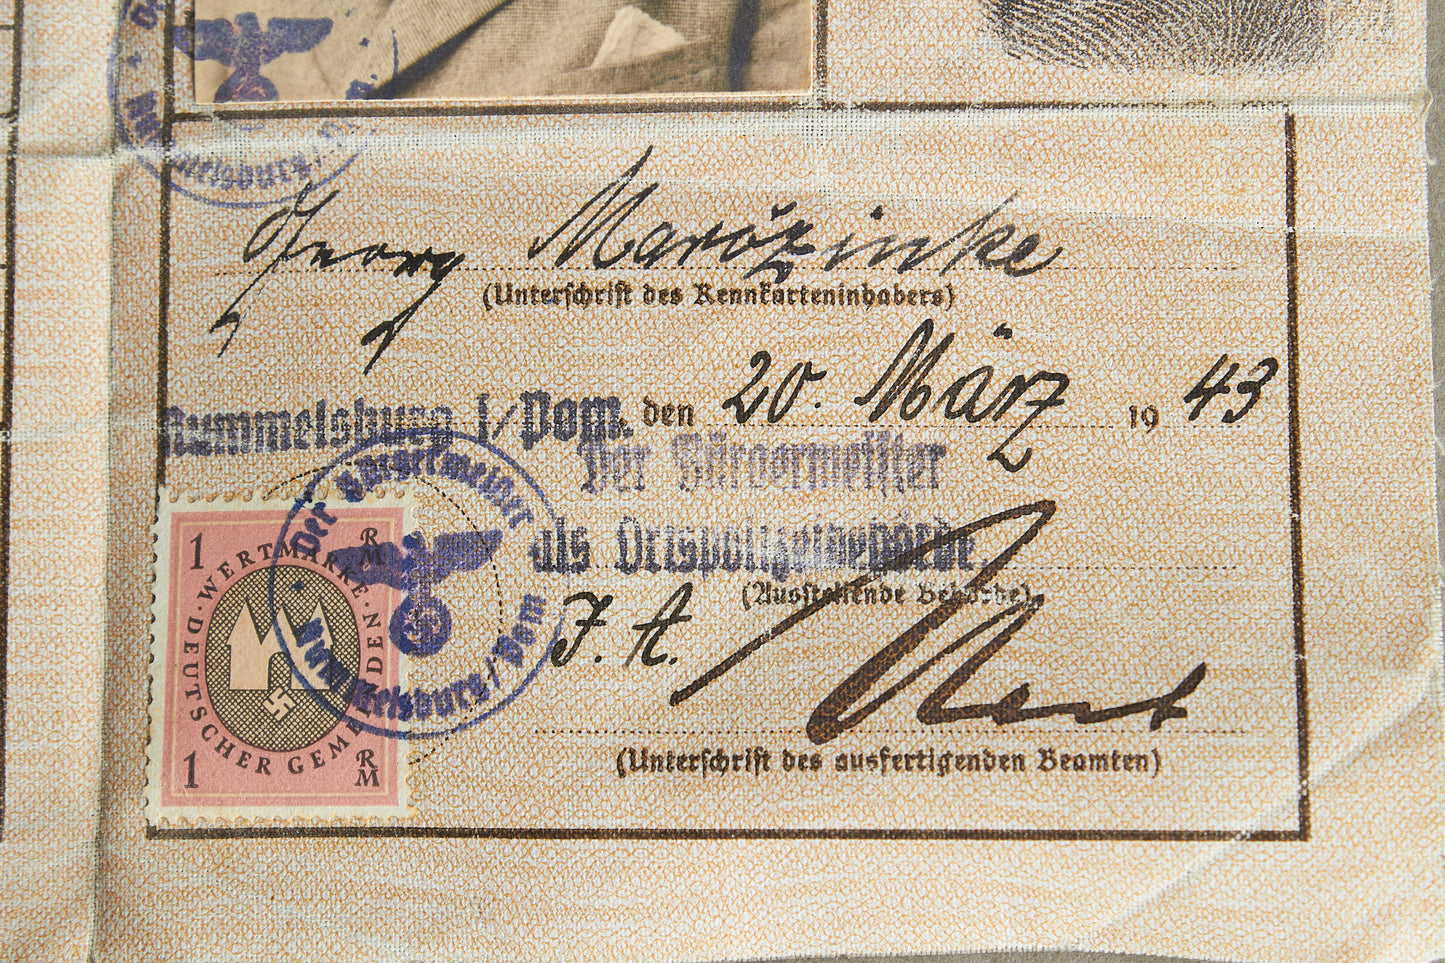 Georg
(Unterschrift des Kennkarteninhabers)
Rummelsburg i/Pom. den 20. März 1943
Der Bürgermeister
als Ortspolizeibehörde
(Ausstellende Behörde)
J. A.
(Unterschrift des ausfertigenden Beamten)
Der Bürgermeister
Rummelsburg/Pom
1 RM
WERTMARKE · DEUTSCHER GEMEINDEN ·
1 RM